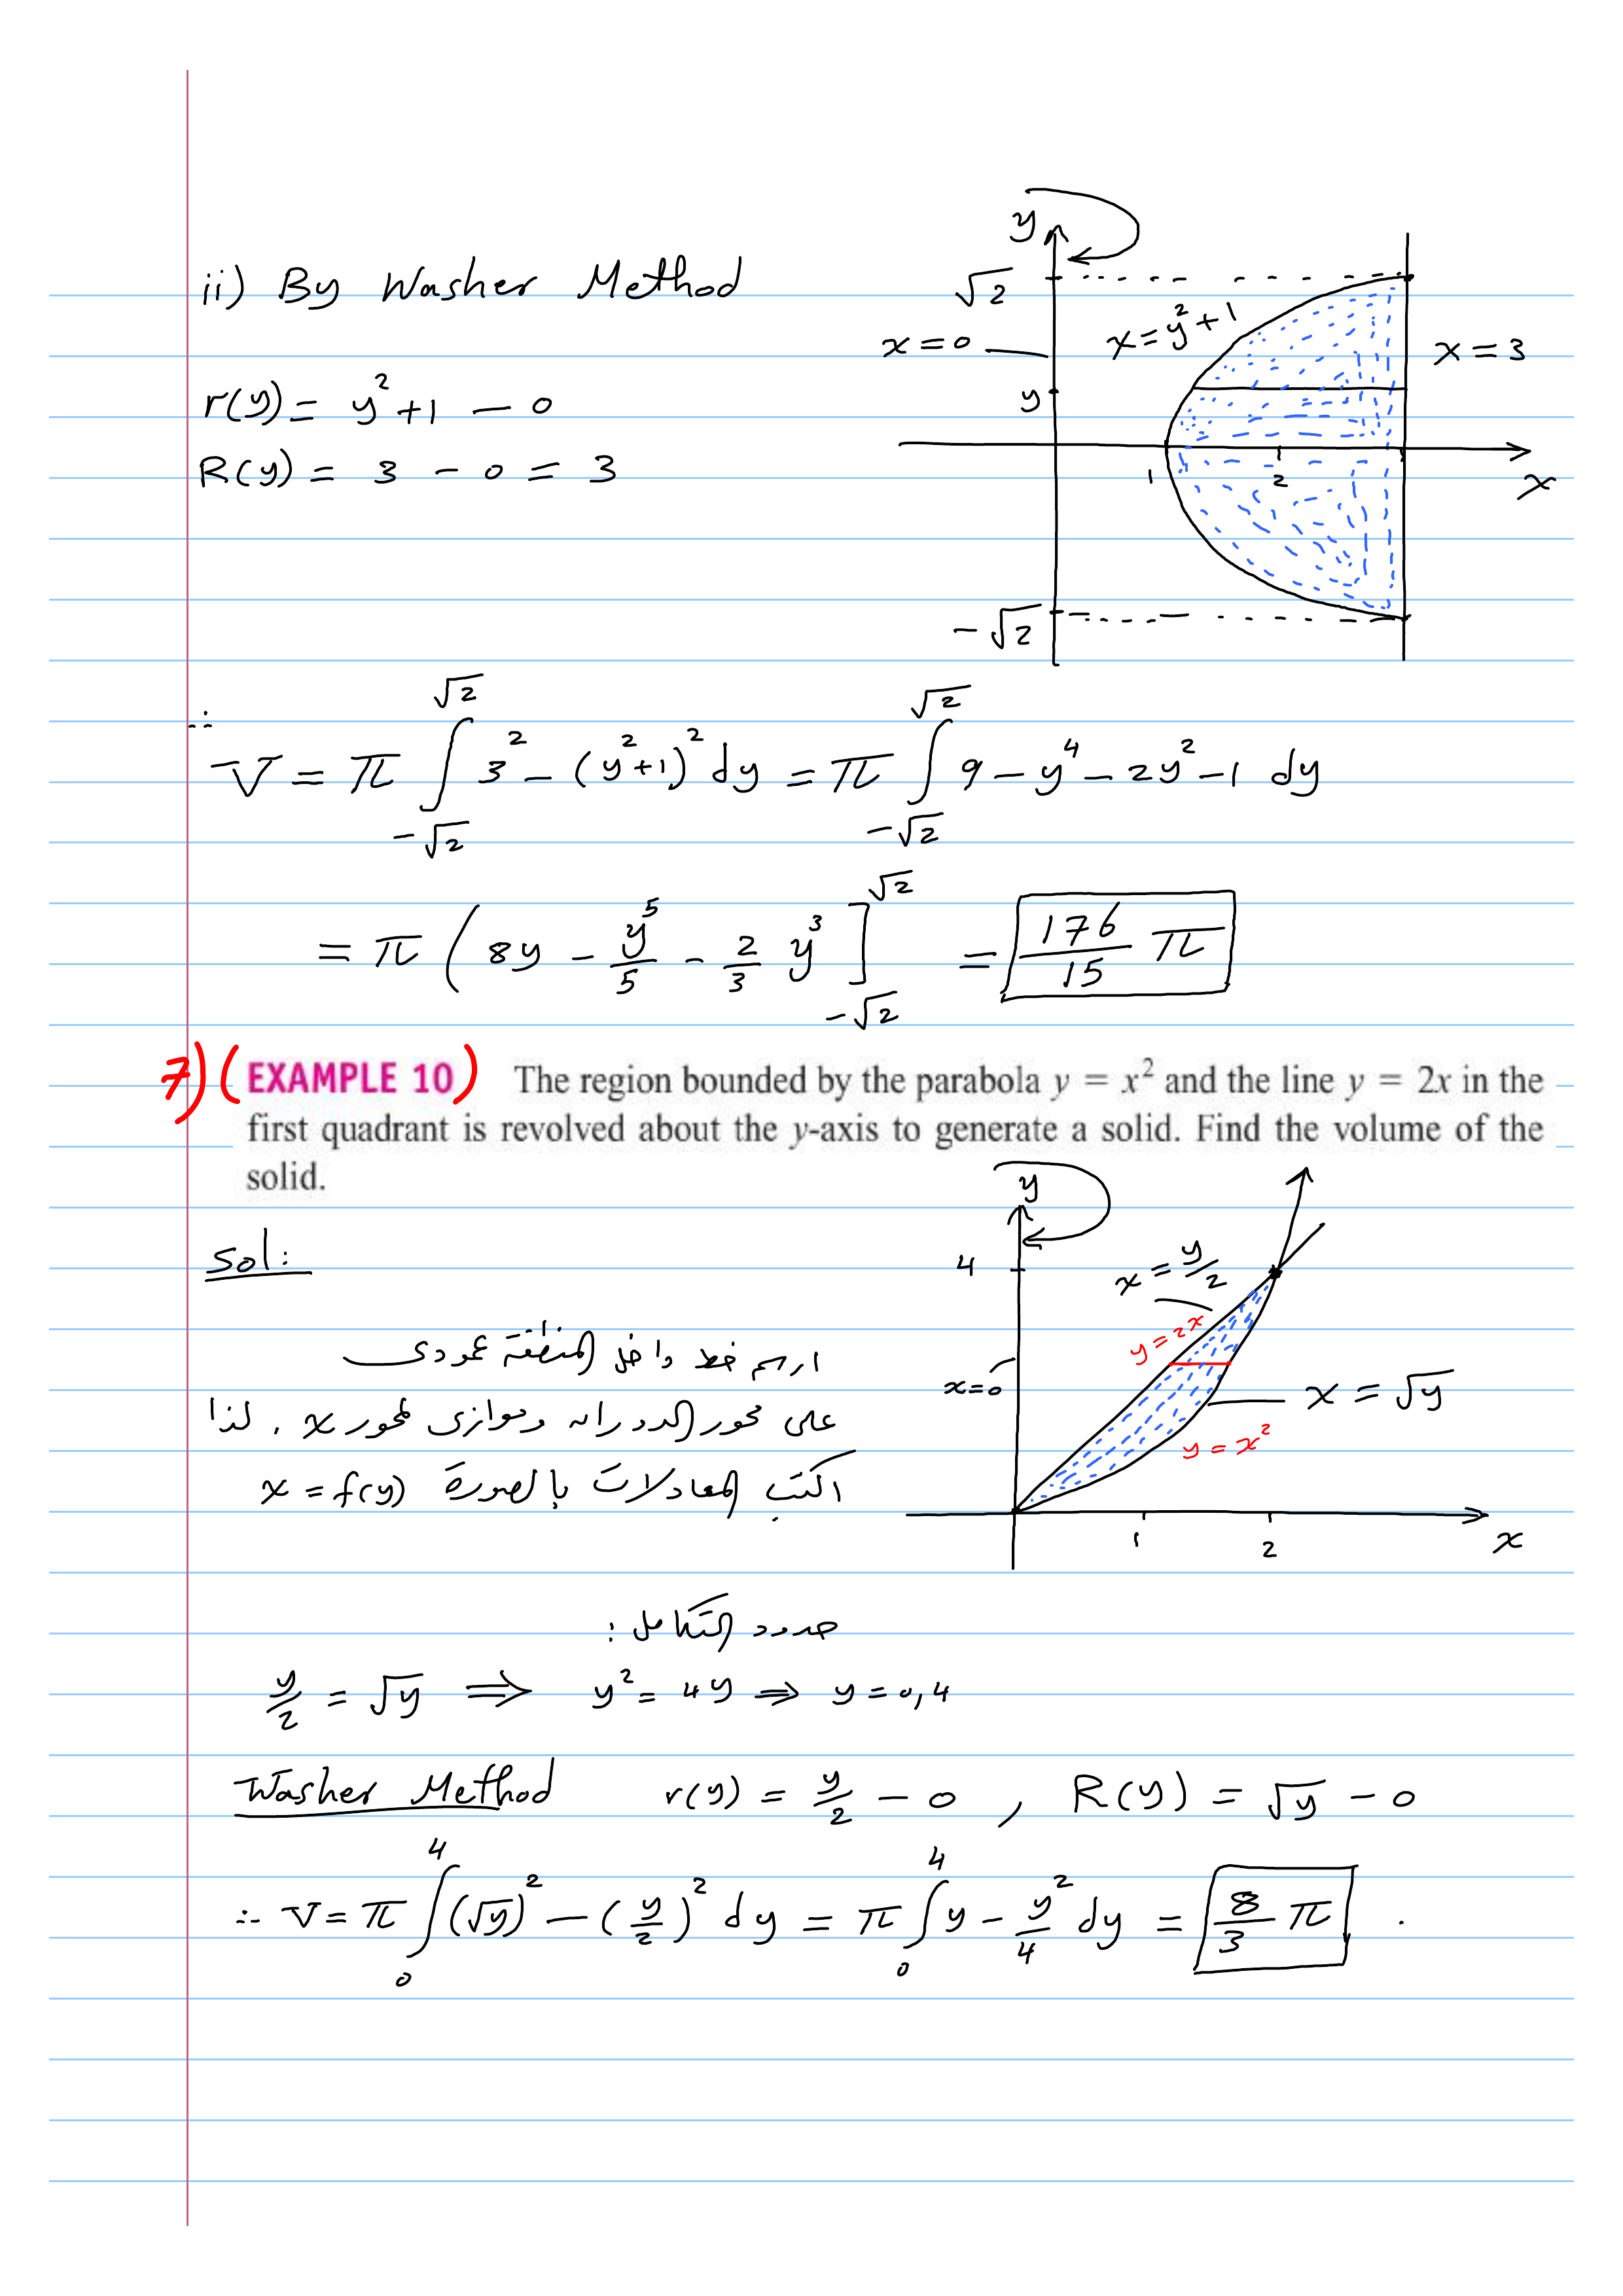 ii) By Washer Method
r(y) = y² + 1 − 0
R(y) = 3 − 0 = 3
y
√2
x = y² + 1
x = 0
x = 3
y
1
2
x
−√2
∴ V = π ∫_{−√2}^{√2} 3² − (y²+1)² dy = π ∫_{−√2}^{√2} 9 − y⁴ − 2y² − 1 dy
= π ( 8y − y⁵/5 − 2/3 y³ ]_{−√2}^{√2} = 176/15 π
7) (EXAMPLE 10) The region bounded by the parabola y = x² and the line y = 2x in the
first quadrant is revolved about the y-axis to generate a solid. Find the volume of the
solid.
Sol:
y
4
x = y/2
y = 2x
x=0
x = √y
y = x²
1
2
x
ارسم خط داخل المنطقة عمودي
على محور الدوران وموازي لمحور x . لذا
اكتب المعادلات بالصورة x = f(y)
حدود التكامل :
y/2 = √y ⟹ y² = 4y ⟹ y = 0, 4
Washer Method r(y) = y/2 − 0 , R(y) = √y − 0
∴ V = π ∫_0^4 (√y)² − (y/2)² dy = π ∫_0^4 y − y²/4 dy = 8/3 π .